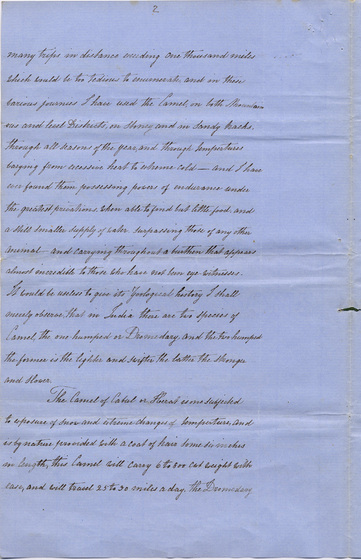 2
many trips in distance exceeding one thousand miles
which would be too tedious to enumerate, and in these
various journies I have used the Camel, on both Mountain
ous and level Districts, on Stoney and on Sandy tracks,
through all seasons of the year, and through temperatures
varying from excessive heat to extreme cold — and I have
ever found them possessing powers of endurance under
the greatest privations, when able to find but little food, and
a still smaller supply of water surpassing those of any other
animal — and carrying throughout a burthen that appears
almost incredible to those who have not been eye-witnesses.
It would be useless to give its Zoological history I shall
merely observe that in India there are two species of
Camel, the one humped or Dromedary, and the two humped
the former is the lighter and swifter the latter the stronger
and slower.
The Camel of Cabul or Herat is one subjected
to exposure of snow and extreme changes of temperature, and
is by nature provided with a coat of hair some six inches
in length, this Camel will carry 6 to 800 weight with
ease, and will travel 25 to 30 miles a day. The Dromedary